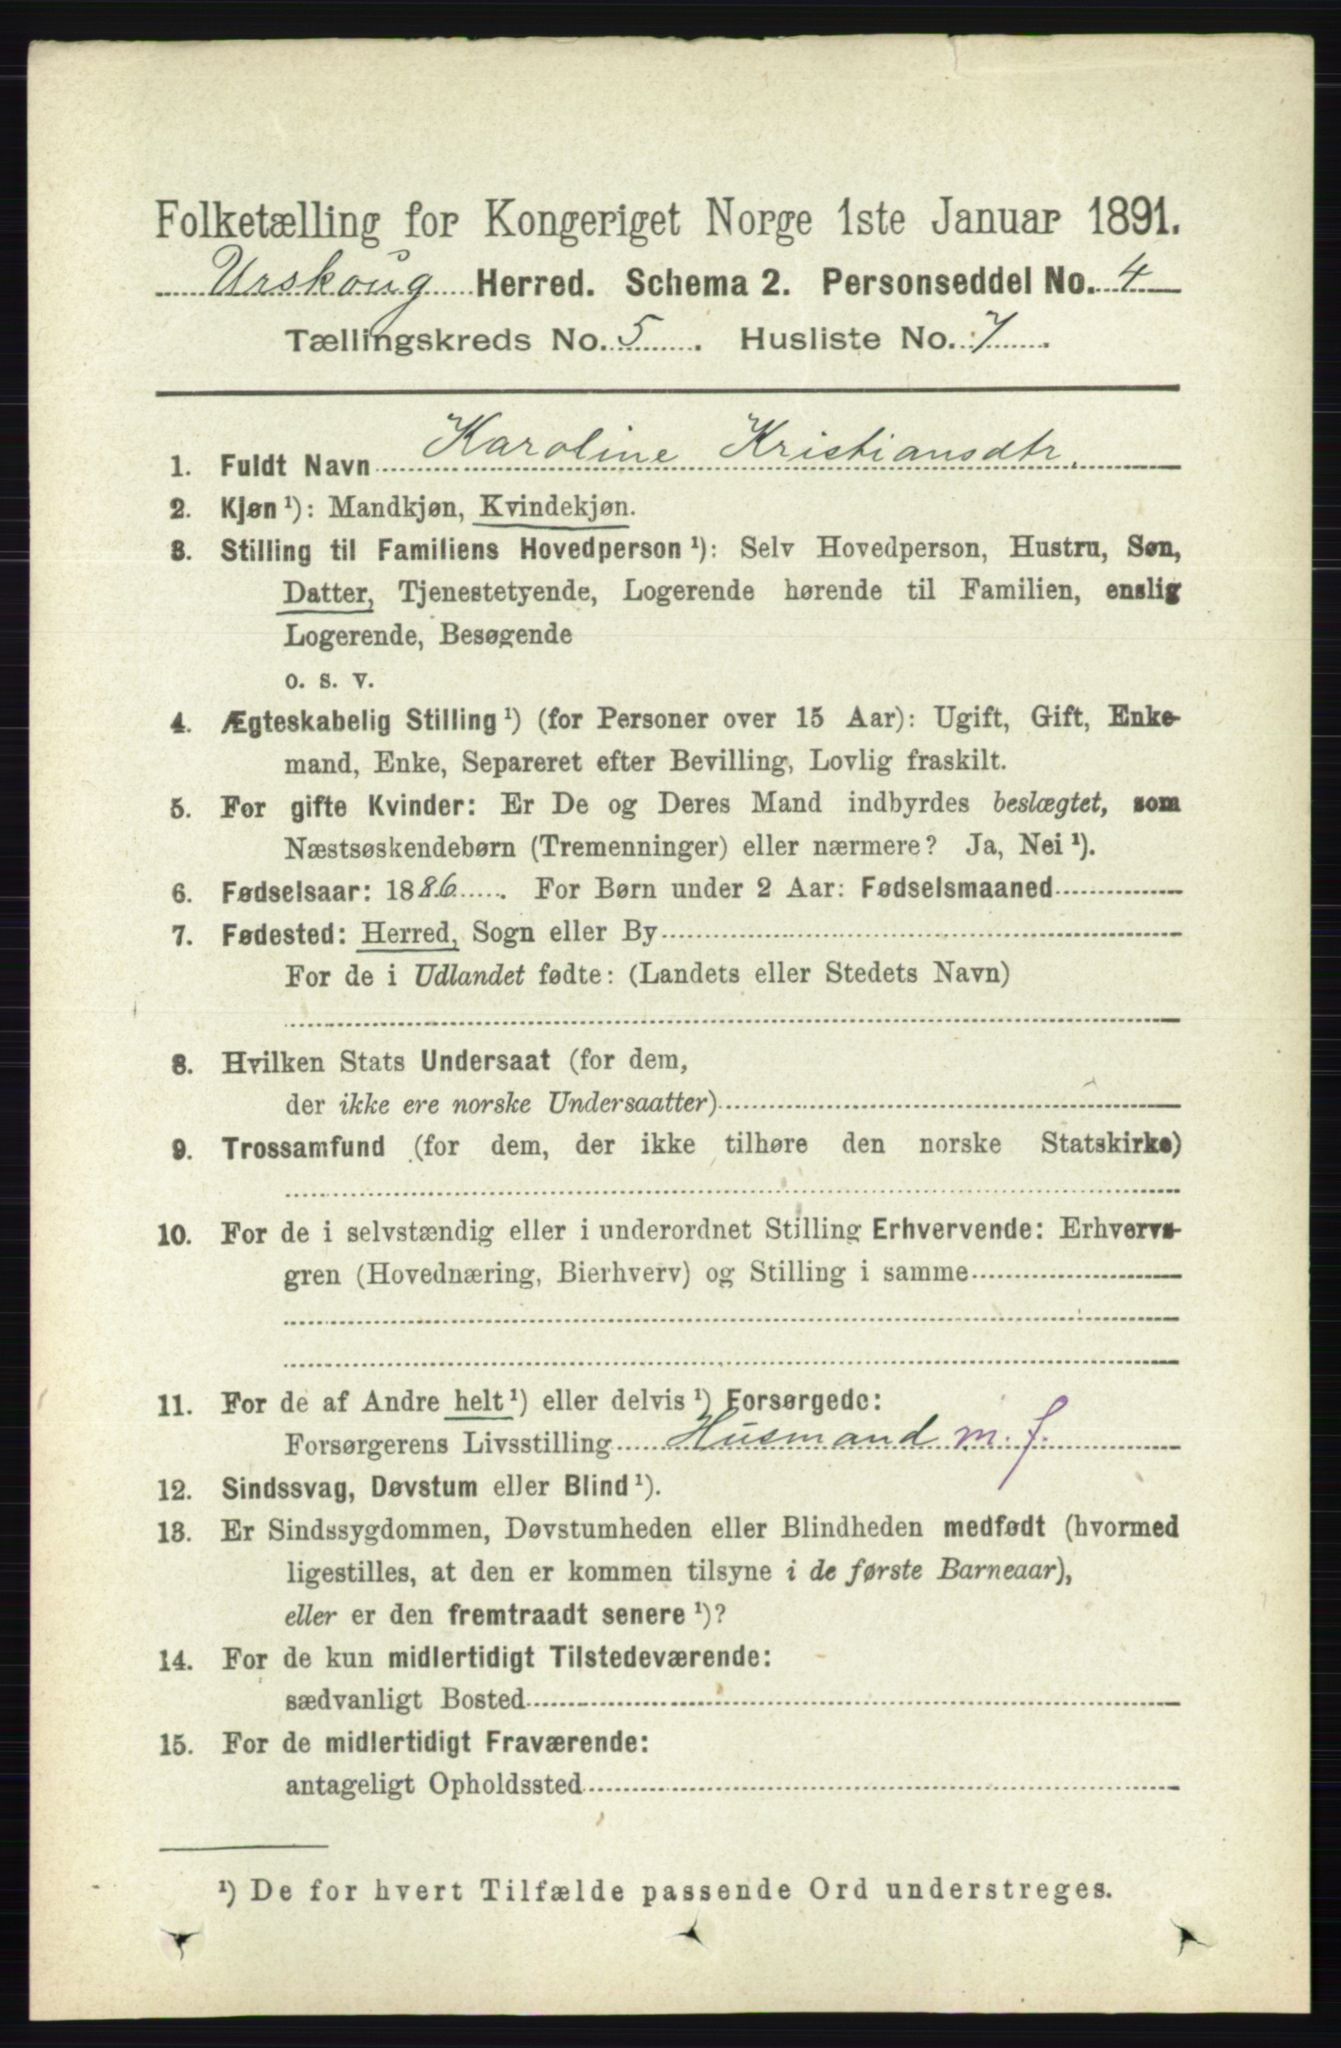 Folketælling for Kongeriget Norge 1ste Januar 1891.
Urskoug Herred. Schema 2. Personseddel No. 4
Tællingskreds No. 5. Husliste No. 7.
1. Fuldt Navn Karoline Kristiansdtr.
2. Kjøn ¹): Mandkjøn, Kvindekjøn.
3. Stilling til Familiens Hovedperson ¹): Selv Hovedperson, Hustru, Søn,
Datter, Tjenestetyende, Logerende hørende til Familien, enslig
Logerende, Besøgende
o. s. v.
4. Ægteskabelig Stilling ¹) (for Personer over 15 Aar): Ugift, Gift, Enke-
mand, Enke, Separeret efter Bevilling, Lovlig fraskilt.
5. For gifte Kvinder: Er De og Deres Mand indbyrdes beslægtet, som
Næstsøskendebørn (Tremenninger) eller nærmere? Ja, Nei ¹).
6. Fødselsaar: 1886. For Børn under 2 Aar: Fødselsmaaned
7. Fødested: Herred, Sogn eller By
For de i Udlandet fødte: (Landets eller Stedets Navn)
8. Hvilken Stats Undersaat (for dem,
der ikke ere norske Undersaatter)
9. Trossamfund (for dem, der ikke tilhøre den norske Statskirke)
10. For de i selvstændig eller i underordnet Stilling Erhvervende: Erhvervs-
gren (Hovednæring, Bierhverv) og Stilling i samme
11. For de af Andre helt ¹) eller delvis ¹) Forsørgede:
Forsørgerens Livsstilling Husmand m. j.
12. Sindssvag, Døvstum eller Blind ¹).
13. Er Sindssygdommen, Døvstumheden eller Blindheden medfødt (hvormed
ligestilles, at den er kommen tilsyne i de første Barneaar),
eller er den fremtraadt senere ¹)?
14. For de kun midlertidigt Tilstedeværende:
sædvanligt Bosted
15. For de midlertidigt Fraværende:
antageligt Opholdssted
¹) De for hvert Tilfælde passende Ord understreges.